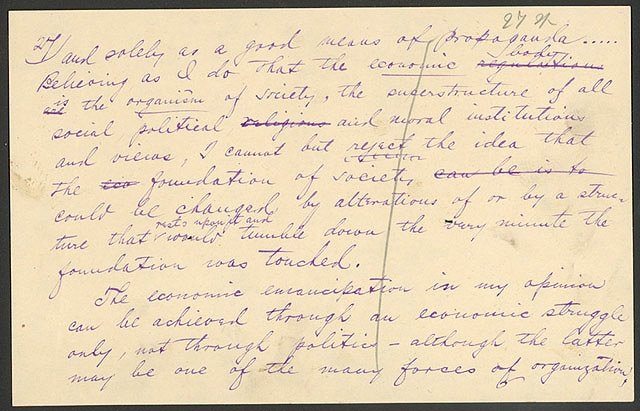 27 
27) and solely as a good means of propaganda.....
Believing as I do that the economic regulations body
as is the organism of society, the superstructure of all
social, political religious and moral institutions
and views, I cannot but reject the idea that
the eco foundation of society can be is to
could be changed by alterations of or by a struc-
ture that rests upon it and would tumble down the very minute the
foundation was touched.
The economic emancipation in my opinion
can be achieved through an economic struggle
only, not through politics – although the latter
may be one of the many forces of organization,